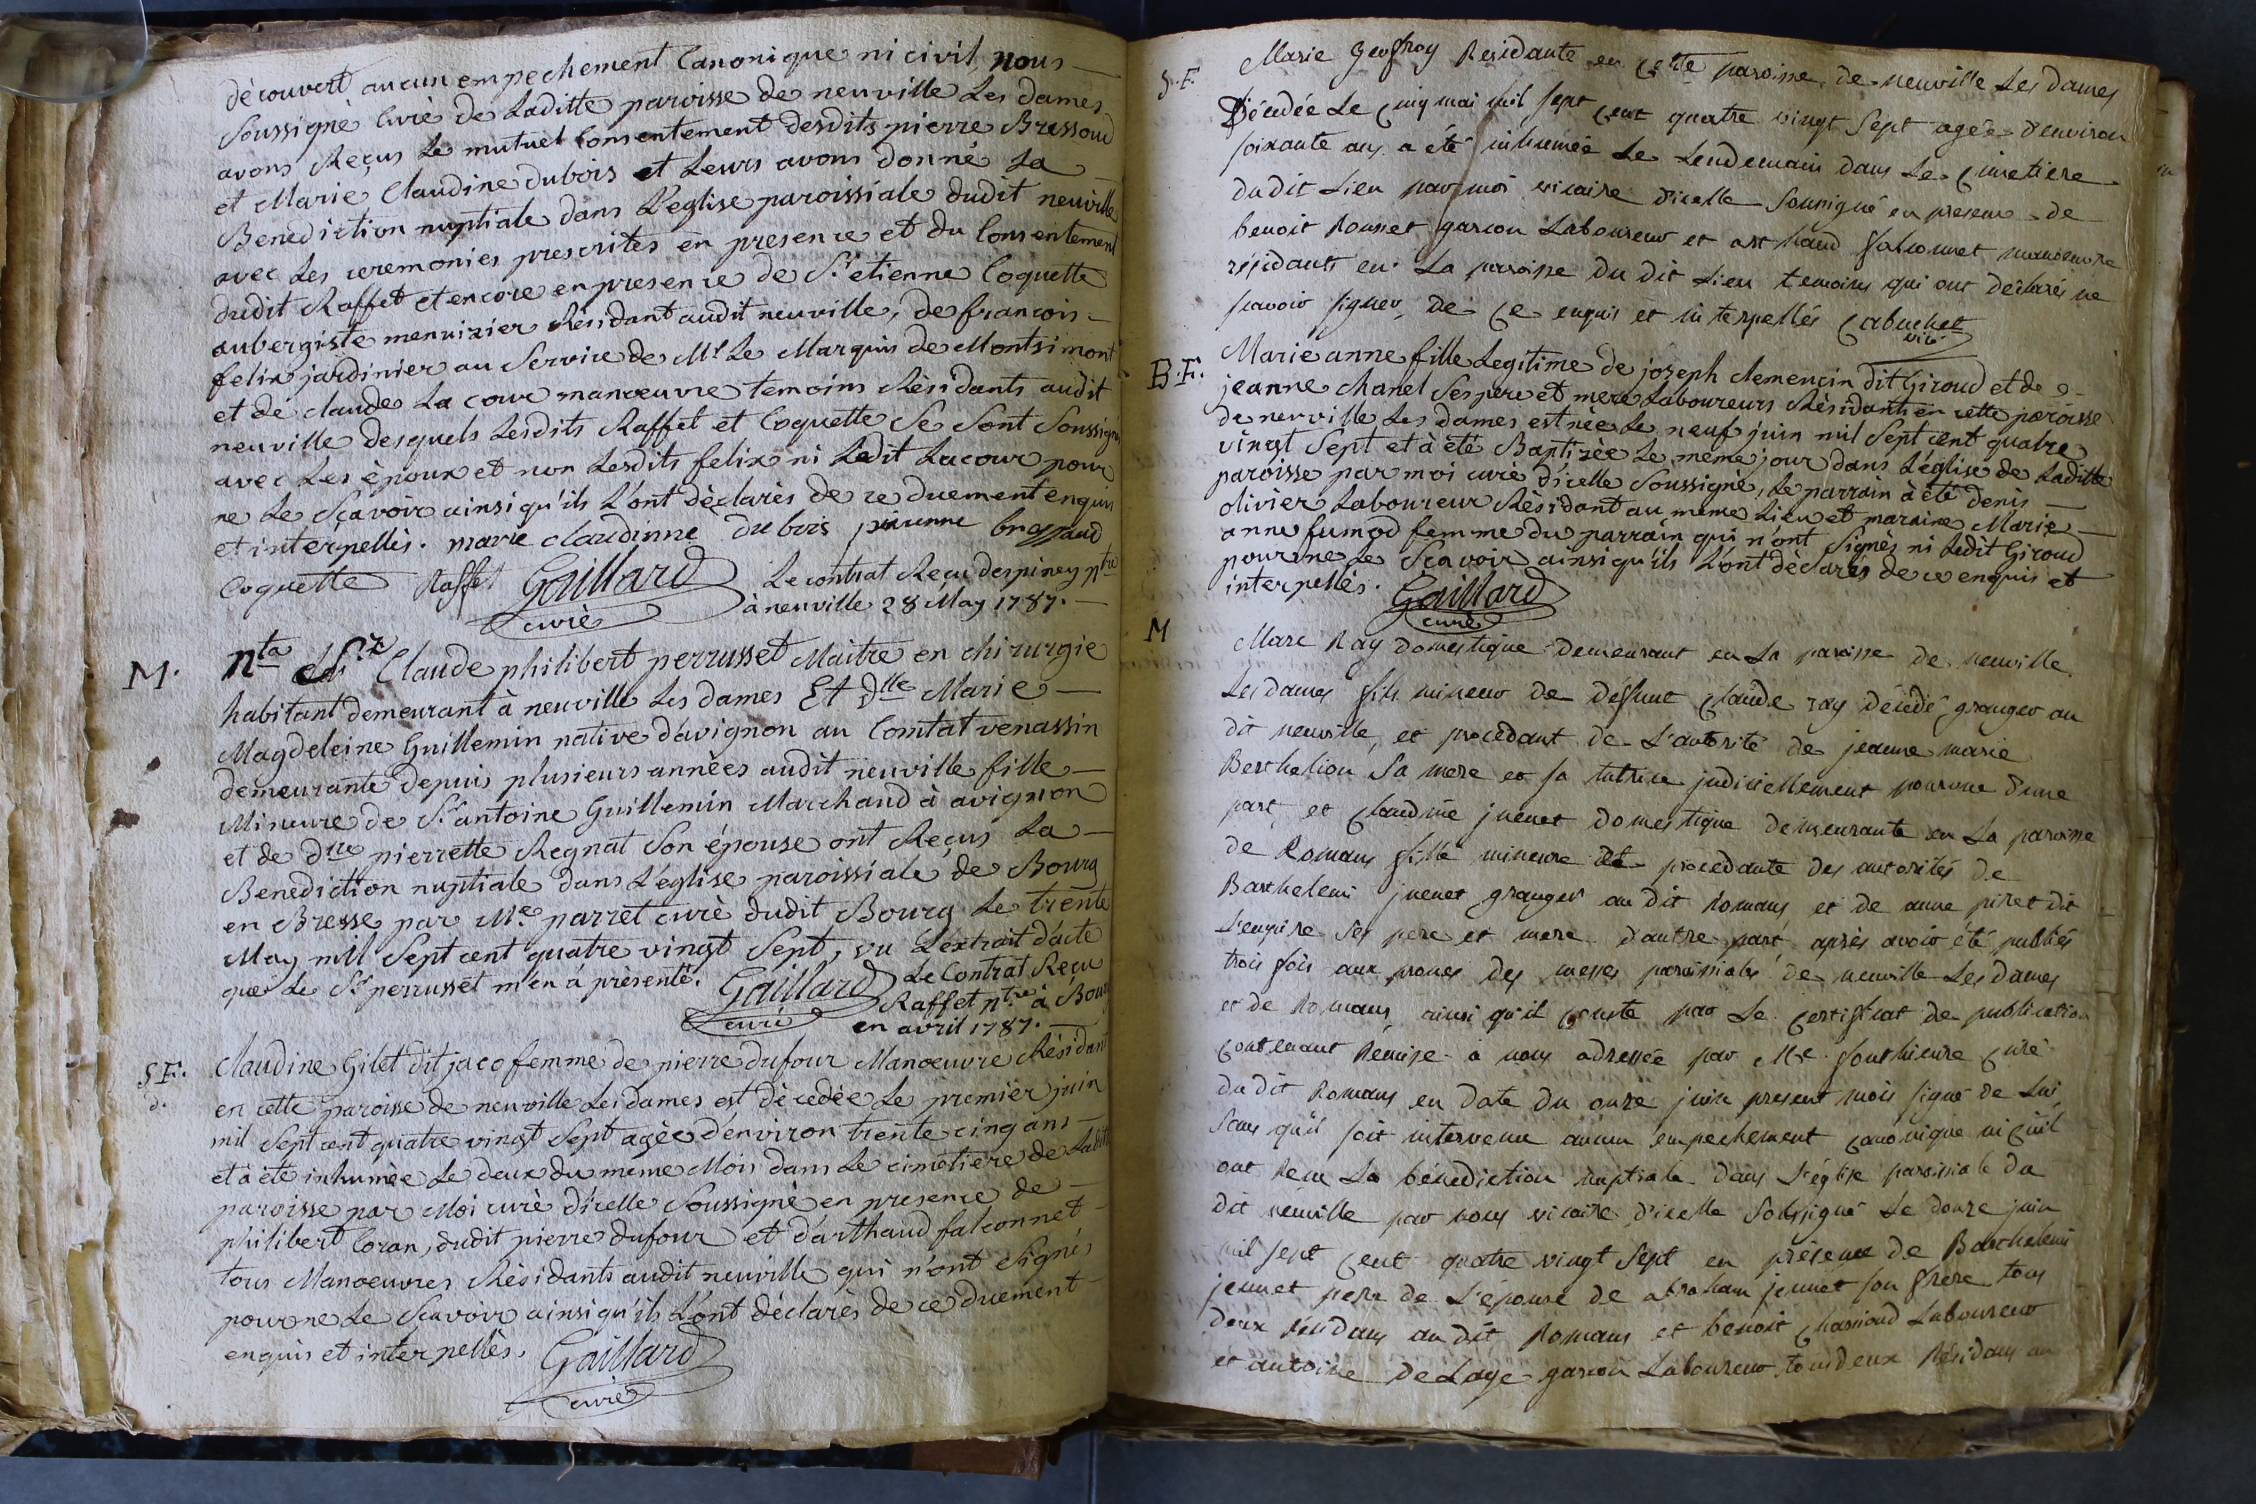 découvert aucun empechement Canonique ni civil, nous
Soussigné Curé de Laditte paroisse de neuville Les dames
avons Reçus Le mutuel Consentement desdits pierre Bressoud
et Marie Claudine dubois et Leurs avons donné La
Benediction nuptiale dans L'eglise paroissiale dudit neuville
avec Les ceremonies prescrites en presence et du Consentement
dudit Raffet et encore en presence de Sr etienne Coquette
aubergiste menuizier Résidant audit neuville, de françois
felix jardinier au Service de Mr Le Marquis de Montsimont
et de claude La cour manœuvre temoins Résidants audit
neuville desquels Lesdits Raffet et Coquette Se Sont Soussignés
avec Les époux et non Lesdits felix ni Ledit Lacour pour
ne Le Sçavoir ainsi qu'ils L'ont déclarés de ce duement enquis
et interpellés. marie claudinne dubois
Coquette Raffet Gaillard Le contrat Reçu despiney ntre
curé à neuville 28 May 1787.
M. nta Sr Claude philibert perrusset Maitre en chirurgie
habitant demeurant à neuville Les dames Et Dlle Marie
Magdeleine Guillemin native d'avignon au Comtat venassin
demeurante depuis plusieurs années audit neuville fille
Mineure de Sr antoine Guillemin Marchand à avignon
et de dlle pierrette Regnat Son épouse ont Reçus La
Benediction nuptiale dans L'eglise paroissiale de Bourg
en Bresse par Mre parret curé dudit Bourg Le trente
May mil Sept cent quatre vingt Sept, vu L'extrait d'acte
que Le Sr perrusset m'en à présenté. Gaillard Le Contrat Reçu
curé Raffet ntre à Bourg
en avril 1787.
S.F. Claudine Gilet dit jaco femme de pierre dufour Manoeuvre Résidant
d. en cette paroisse de neuville Les dames est décedée Le premier juin
mil Sept cent quatre vingt Sept agée d'environ trente cinq ans
et à été inhumée Le deux du même Mois dans Le cimetiere de Laditte
paroisse par Moi curé d'icelle Soussigné en presence de
philibert Coran, dudit pierre dufour et d'arthaud falconnet
tous Manoeuvres Résidants audit neuville qui n'ont Signés
pour ne Le Scavoir ainsi qu'ils L'ont déclarés de ce duement
enquis et interpellés. Gaillard
curé
S.F. Marie Geofroy Residante en cette paroisse de neuville Les dames
Décédée Le cinq mai mil sept cent quatre vingt Sept agée d'environ
soixante ans a été inhumée Le Lendemain dans Le cimetiere
du dit Lieu par moi vicaire d'icelle Soussigné en presence de
benoit Rousset garçon Laboureur et arthaud falconnet manoeuvre
résidants en La paroisse du dit Lieu temoins qui ont déclarés ne
scavoir signer, de ce enquis et interpellés Cabuchet
vic.
B.F. Marie anne fille Legitime de joseph clemencin dit Giroud et de
jeanne chanel Ses pere et mere Laboureurs Résidants en cette paroisse
de neuville Les dames est née Le neuf juin mil Sept cent quatre
vingt Sept et à été Baptizée Le même jour dans L'église de Laditte
paroisse par moi curé d'icelle Soussigné, Le parrain à été denis
olivier Laboureur Résidant au même Lieu et maraine Marie
anne fumod femme du parrain qui n'ont Signés ni Ledit Giroud
pour ne Le Scavoir ainsi qu'ils L'ont déclarés de ce enquis et
interpellés. Gaillard
curé
M Marc Ray Domestique demeurant en La paroisse de neuville
Les dames fils mineur de défunt Claude ray décédé granger au
dit neuville, et procédant de L'autorité de jeanne marie
Berthelion Sa mere et sa tutrice judiciellement pourvue d'une
part, et claudine juenet domestique demeurante en La paroisse
de Romans fille mineure et procedante des autorités de
Barthelemi juenet granger au dit Romans et de anne piret dit
L'empire Ses pere et mere d'autre part, après avoir été publiés
trois fois aux prones des messes paroissiales de neuville Les dames
et de Romans ainsi qu'il conste par Le certificat de publication
contenant Remise à nous adressée par Mre fonthieure curé
du dit Romans en date du onze juin present mois signé de Lui,
Sans qu'il soit intervenu aucun empechement canonique ni civil
ont Reçu La bénédiction nuptiale dans L'église paroissiale du
dit neuville par nous vicaire d'icelle Soussigné Le douze juin
mil sept cent quatre vingt Sept en présence de Barthelemi
jeunet pere de L'épouse de abraham jeunet son frere tous
deux résidans au dit Romans et benoit chassoud Laboureur
et antoine de Laye garcon Laboureur tous deux Résidans au